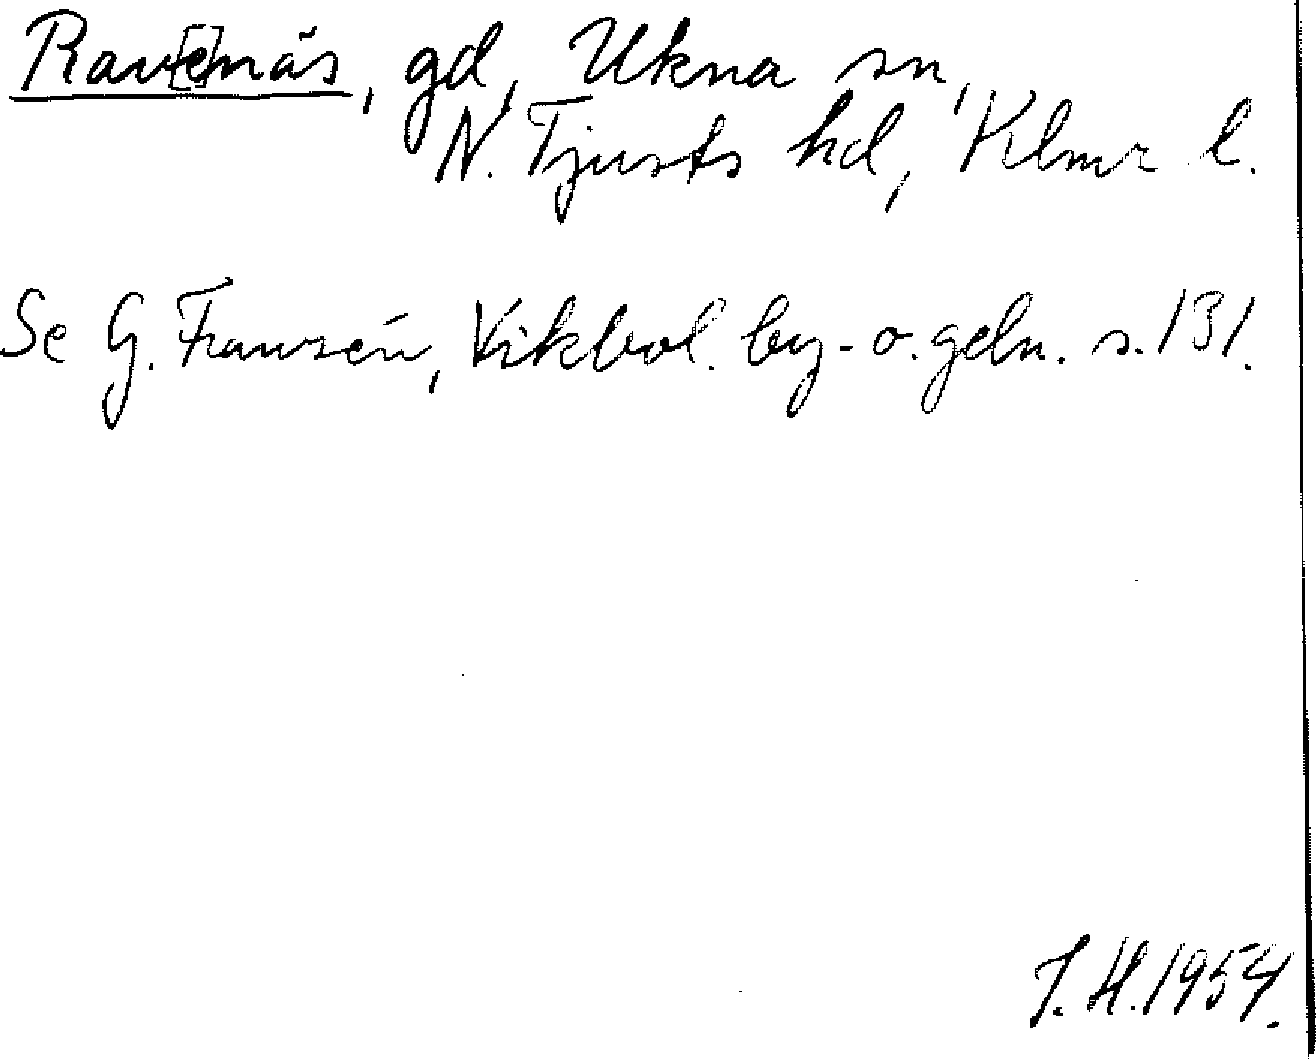 Rav[e]näs, gd, Ukna sn,
N. Tjusts hd, Klmr l.
Se G. Franzén, Vikbol. by- o. gdn. s. 131.
J. H. 1954.